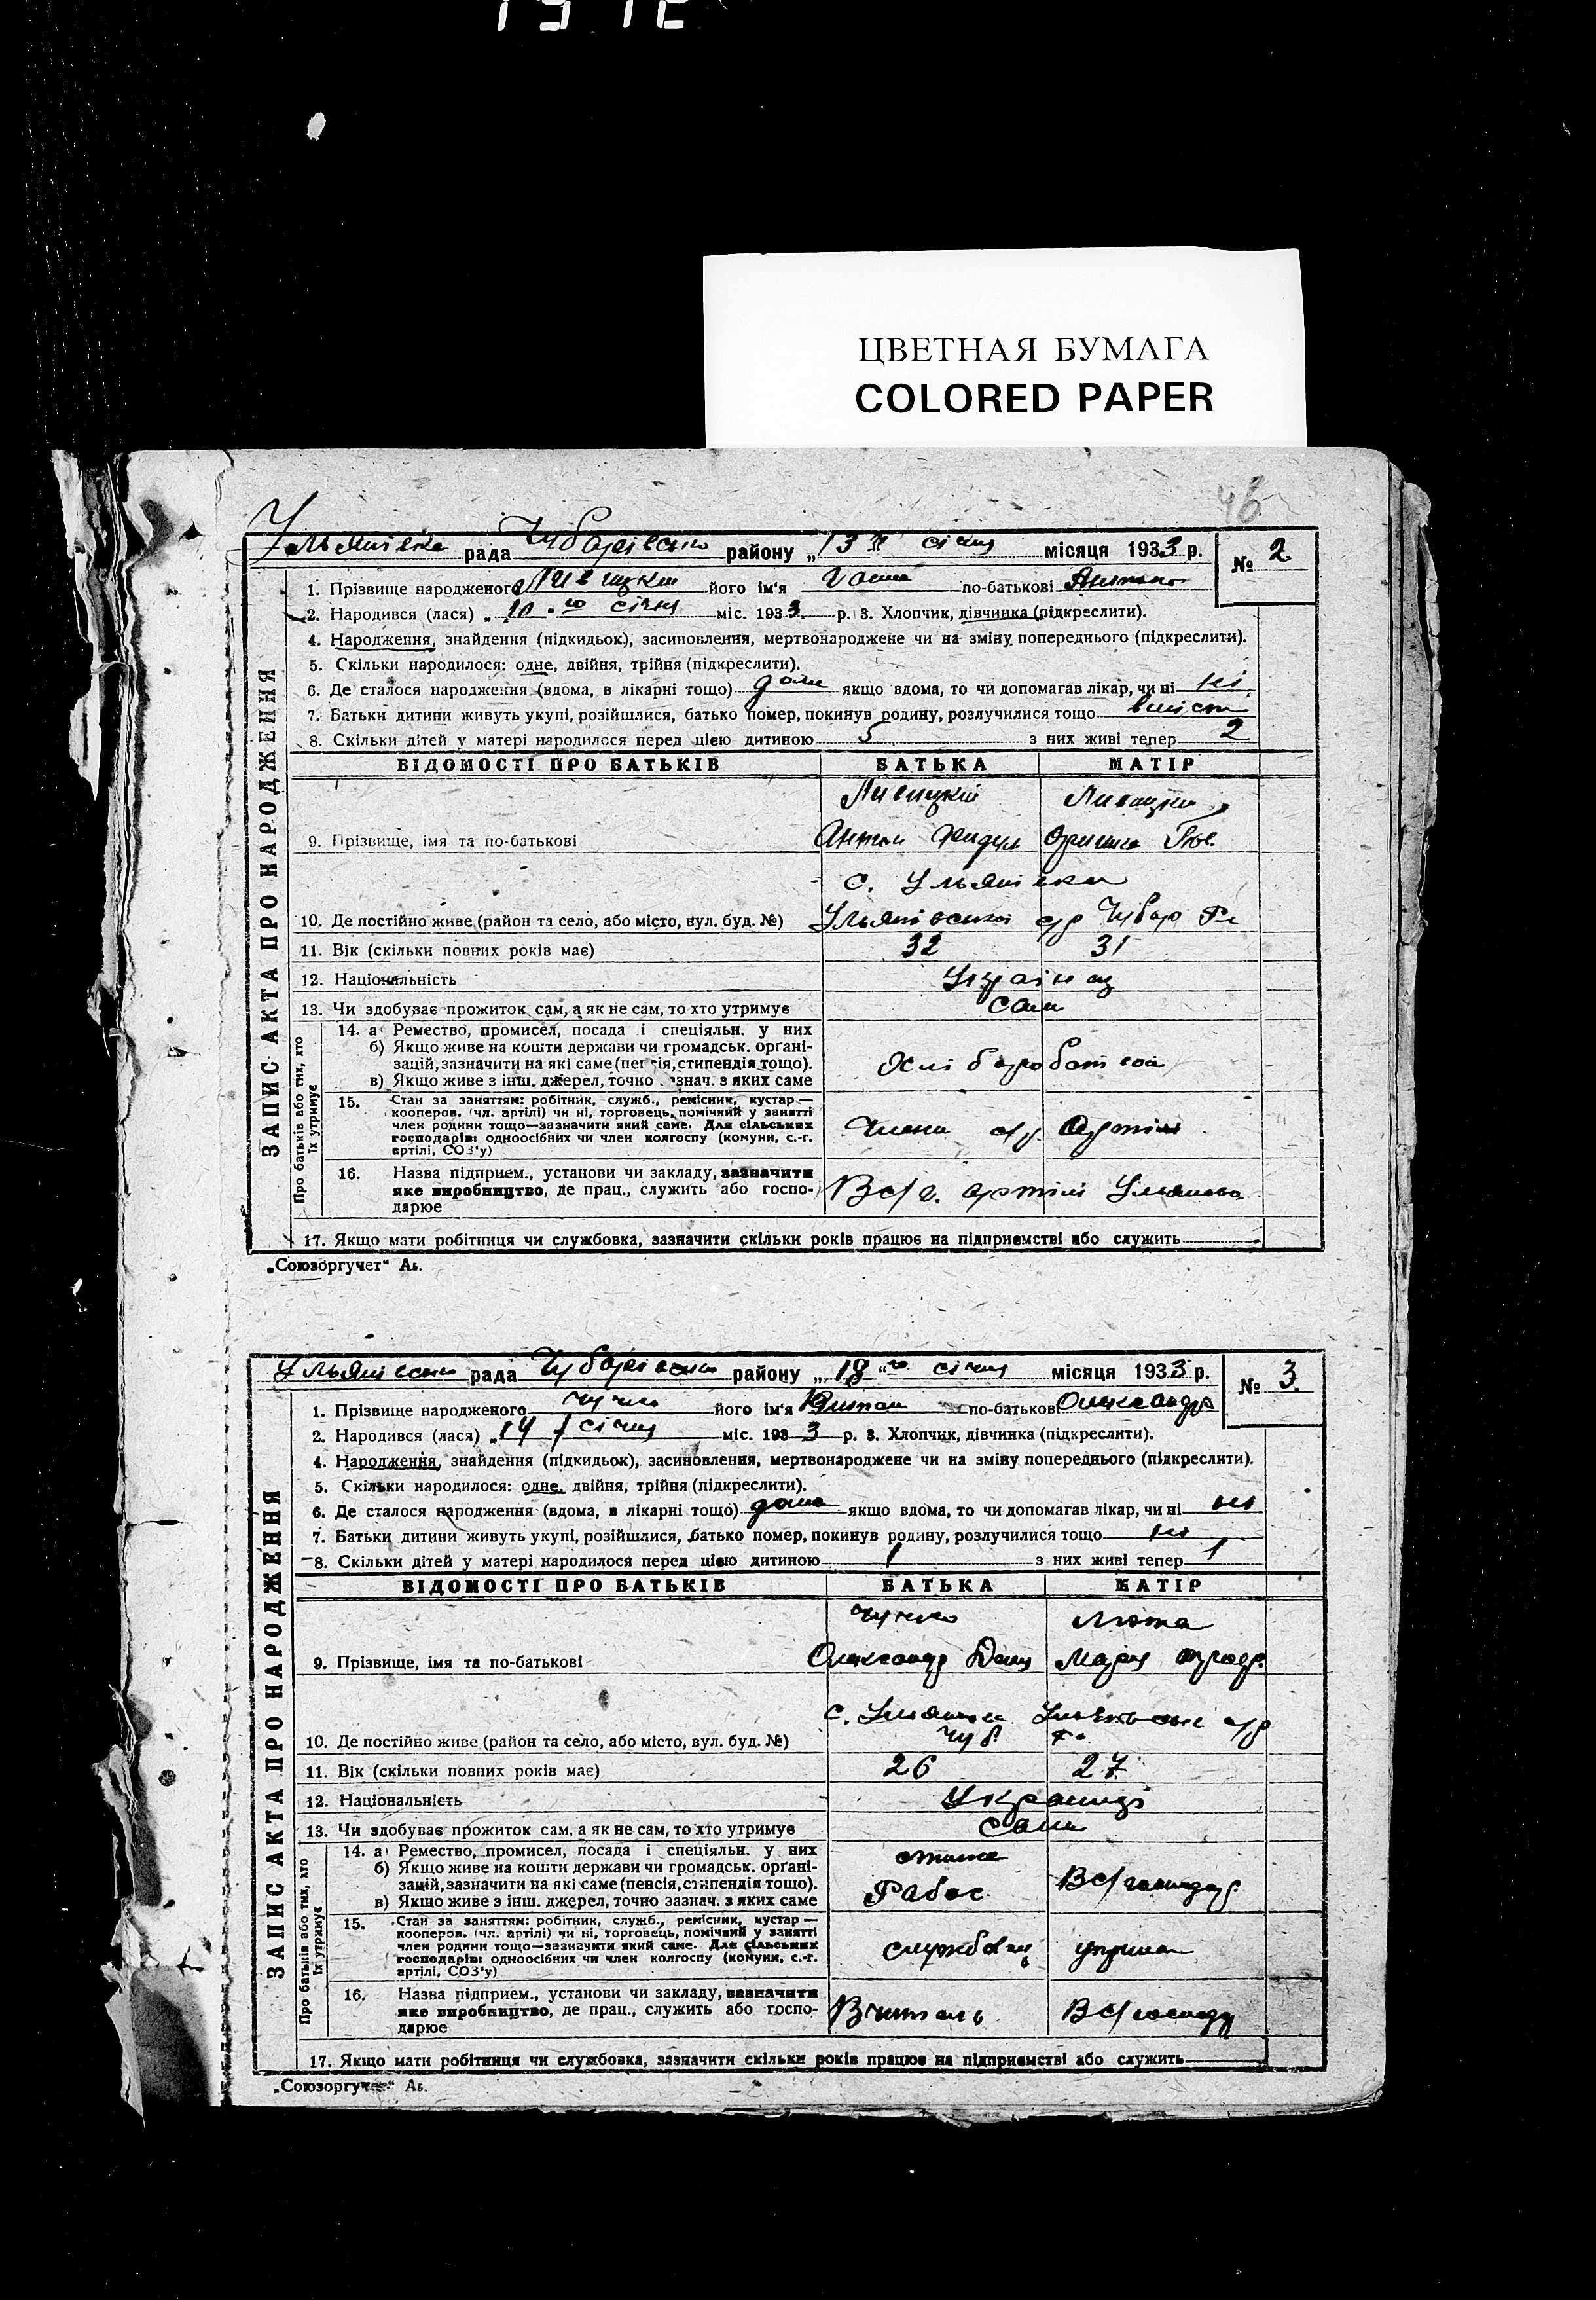 ЦВЕТНАЯ БУМАГА
COLORED PAPER
46
Ульянівка рада Чубарівсько району „13 січня місяця 1933 р. № 2.
1. Прізвище народженого Ливицкий його ім'я по-батькові Антоно
2. Народився (лася) „10-го січня міс. 1933 р. 3. Хлопчик, дівчинка (підкреслити).
4. Народження, знайдення (підкидьок), засиновлення, мертвонароджене чи на зміну попереднього (підкреслити).
5. Скільки народилося: одне, двійня, трійня (підкреслити).
6. Де сталося народження (вдома, в лікарні тощо) дома якщо вдома, то чи допомагав лікар, чи ні ні
7. Батьки дитини живуть укупі, розійшлися, батько помер, покинув родину, розлучилися тощо вмісті
8. Скільки дітей у матері народилося перед цією дитиною 5 з них живі тепер 2
ВІДОМОСТІ ПРО БАТЬКІВ БАТЬКА МАТІР
Ливицкий
9. Прізвище, імя та по-батькові Антон
с. Ульянівка
10. Де постійно живе (район та село, або місто, вул. буд. №) Ульянівської с/р Чубар
11. Вік (скільки повних років має) 32 31
12. Національність Українц
13. Чи здобуває прожиток сам, а як не сам, то хто утримує сами
14. а) Ремество, промисел, посада і спеціяльн. у них
б) Якщо живе на кошти держави чи громадськ. органі-
зацій, зазначити на які саме (пенсія, стипендія тощо).
в) Якщо живе з інш. джерел, точно зазнач. з яких саме
Хліборобством
15. Стан за заняттям: робітник, служб., ремісник, кустар—
кооперов. (чл. артілі) чи ні, торговець, помічний у занятті
член родини тощо—зазначити який саме. Для сільських
господарів: одноосібних чи член колгоспу (комуни, с.-г.
артілі, СОЗ'у)
Члени Артілі
16. Назва підприєм., установи чи закладу, зазначити
яке виробництво, де прац., служить або госпо-
дарює
В с/г. артілі
17. Якщо мати робітниця чи службовка, зазначити скільки років працює на підприємстві або служить
ЗАПИС АКТА ПРО НАРОДЖЕННЯ
Про батьків або тих, хто їх утримує
„Союзоргучет“
Ульянівсько рада Чубарівсько району „18“го січня місяця 1933 р. № 3.
1. Прізвище народженого Чучко його ім'я по-батькові Олександр
2. Народився (лася) „14 / січня міс. 1933 р. 3. Хлопчик, дівчинка (підкреслити).
4. Народження, знайдення (підкидьок), засиновлення, мертвонароджене чи на зміну попереднього (підкреслити).
5. Скільки народилося: одне, двійня, трійня (підкреслити).
6. Де сталося народження (вдома, в лікарні тощо) дома якщо вдома, то чи допомагав лікар, чи ні ні
7. Батьки дитини живуть укупі, розійшлися, батько помер, покинув родину, розлучилися тощо ні
8. Скільки дітей у матері народилося перед цією дитиною 1 з них живі тепер 1
ВІДОМОСТІ ПРО БАТЬКІВ БАТЬКА МАТІР
Чучко Люта
9. Прізвище, імя та по-батькові Олександр Марія
с. Ульянівка с/р
10. Де постійно живе (район та село, або місто, вул. буд. №) Чуб.
11. Вік (скільки повних років має) 26 27
12. Національність Українці
13. Чи здобуває прожиток сам, а як не сам, то хто утримує сами
14. а) Ремество, промисел, посада і спеціяльн. у них
б) Якщо живе на кошти держави чи громадськ. органі-
зацій, зазначити на які саме (пенсія, стипендія тощо).
в) Якщо живе з інш. джерел, точно зазнач. з яких саме
Рабос
15. Стан за заняттям: робітник, служб., ремісник, кустар—
кооперов. (чл. артілі) чи ні, торговець, помічний у занятті
член родини тощо—зазначити який саме. Для сільських
господарів: одноосібних чи член колгоспу (комуни, с.-г.
артілі, СОЗ'у)
службовец
16. Назва підприєм., установи чи закладу, зазначити
яке виробництво, де прац., служить або госпо-
дарює
Вчитель
17. Якщо мати робітниця чи службовка, зазначити скільки років працює на підприємстві або служить
ЗАПИС АКТА ПРО НАРОДЖЕННЯ
Про батьків або тих, хто їх утримує
„Союзоргучет“